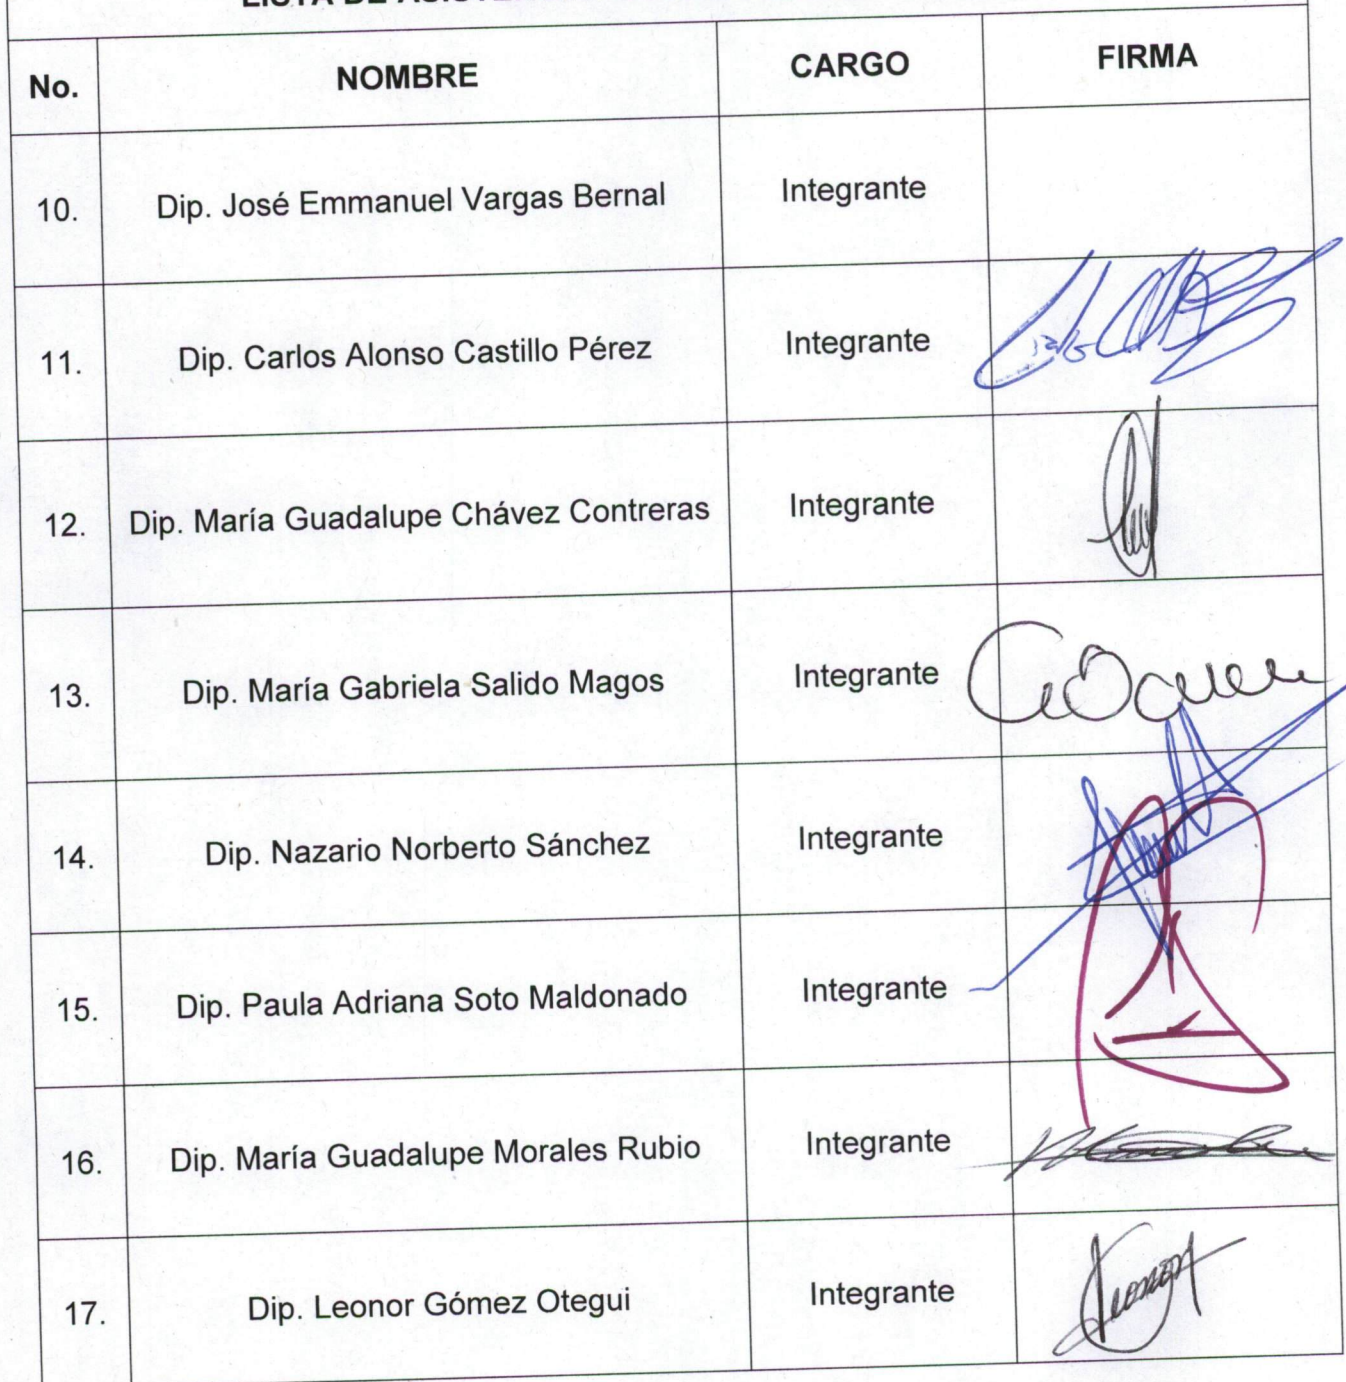 No. NOMBRE CARGO FIRMA
10. Dip. José Emmanuel Vargas Bernal Integrante
11. Dip. Carlos Alonso Castillo Pérez Integrante
12. Dip. María Guadalupe Chávez Contreras Integrante
13. Dip. María Gabriela Salido Magos Integrante
14. Dip. Nazario Norberto Sánchez Integrante
15. Dip. Paula Adriana Soto Maldonado Integrante
16. Dip. María Guadalupe Morales Rubio Integrante
17. Dip. Leonor Gómez Otegui Integrante